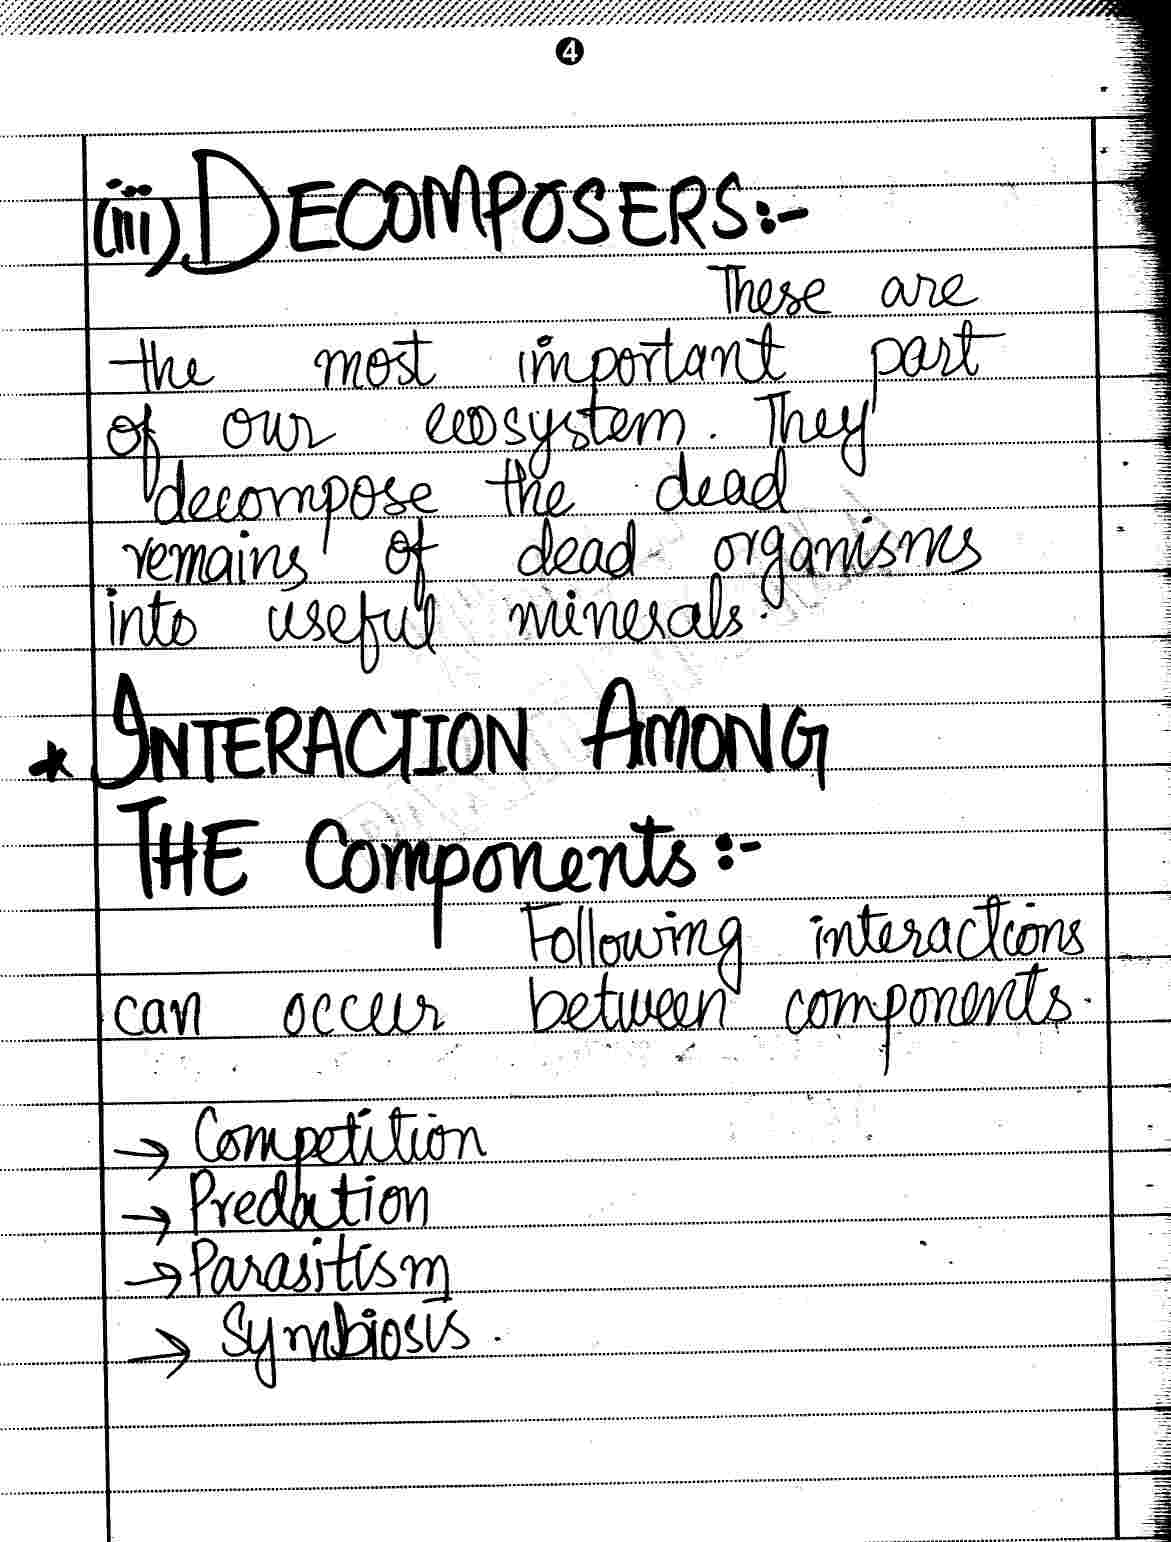 4
(iii) DECOMPOSERS:-
These are
the most important part
of our ecosystem. They
decompose the dead
remains of dead organisms
into useful minerals.
* INTERACTION AMONG
THE Components:-
Following interactions
can occur between components.
→ Competition
→ Predation
→ Parasitism
→ Symbiosis.